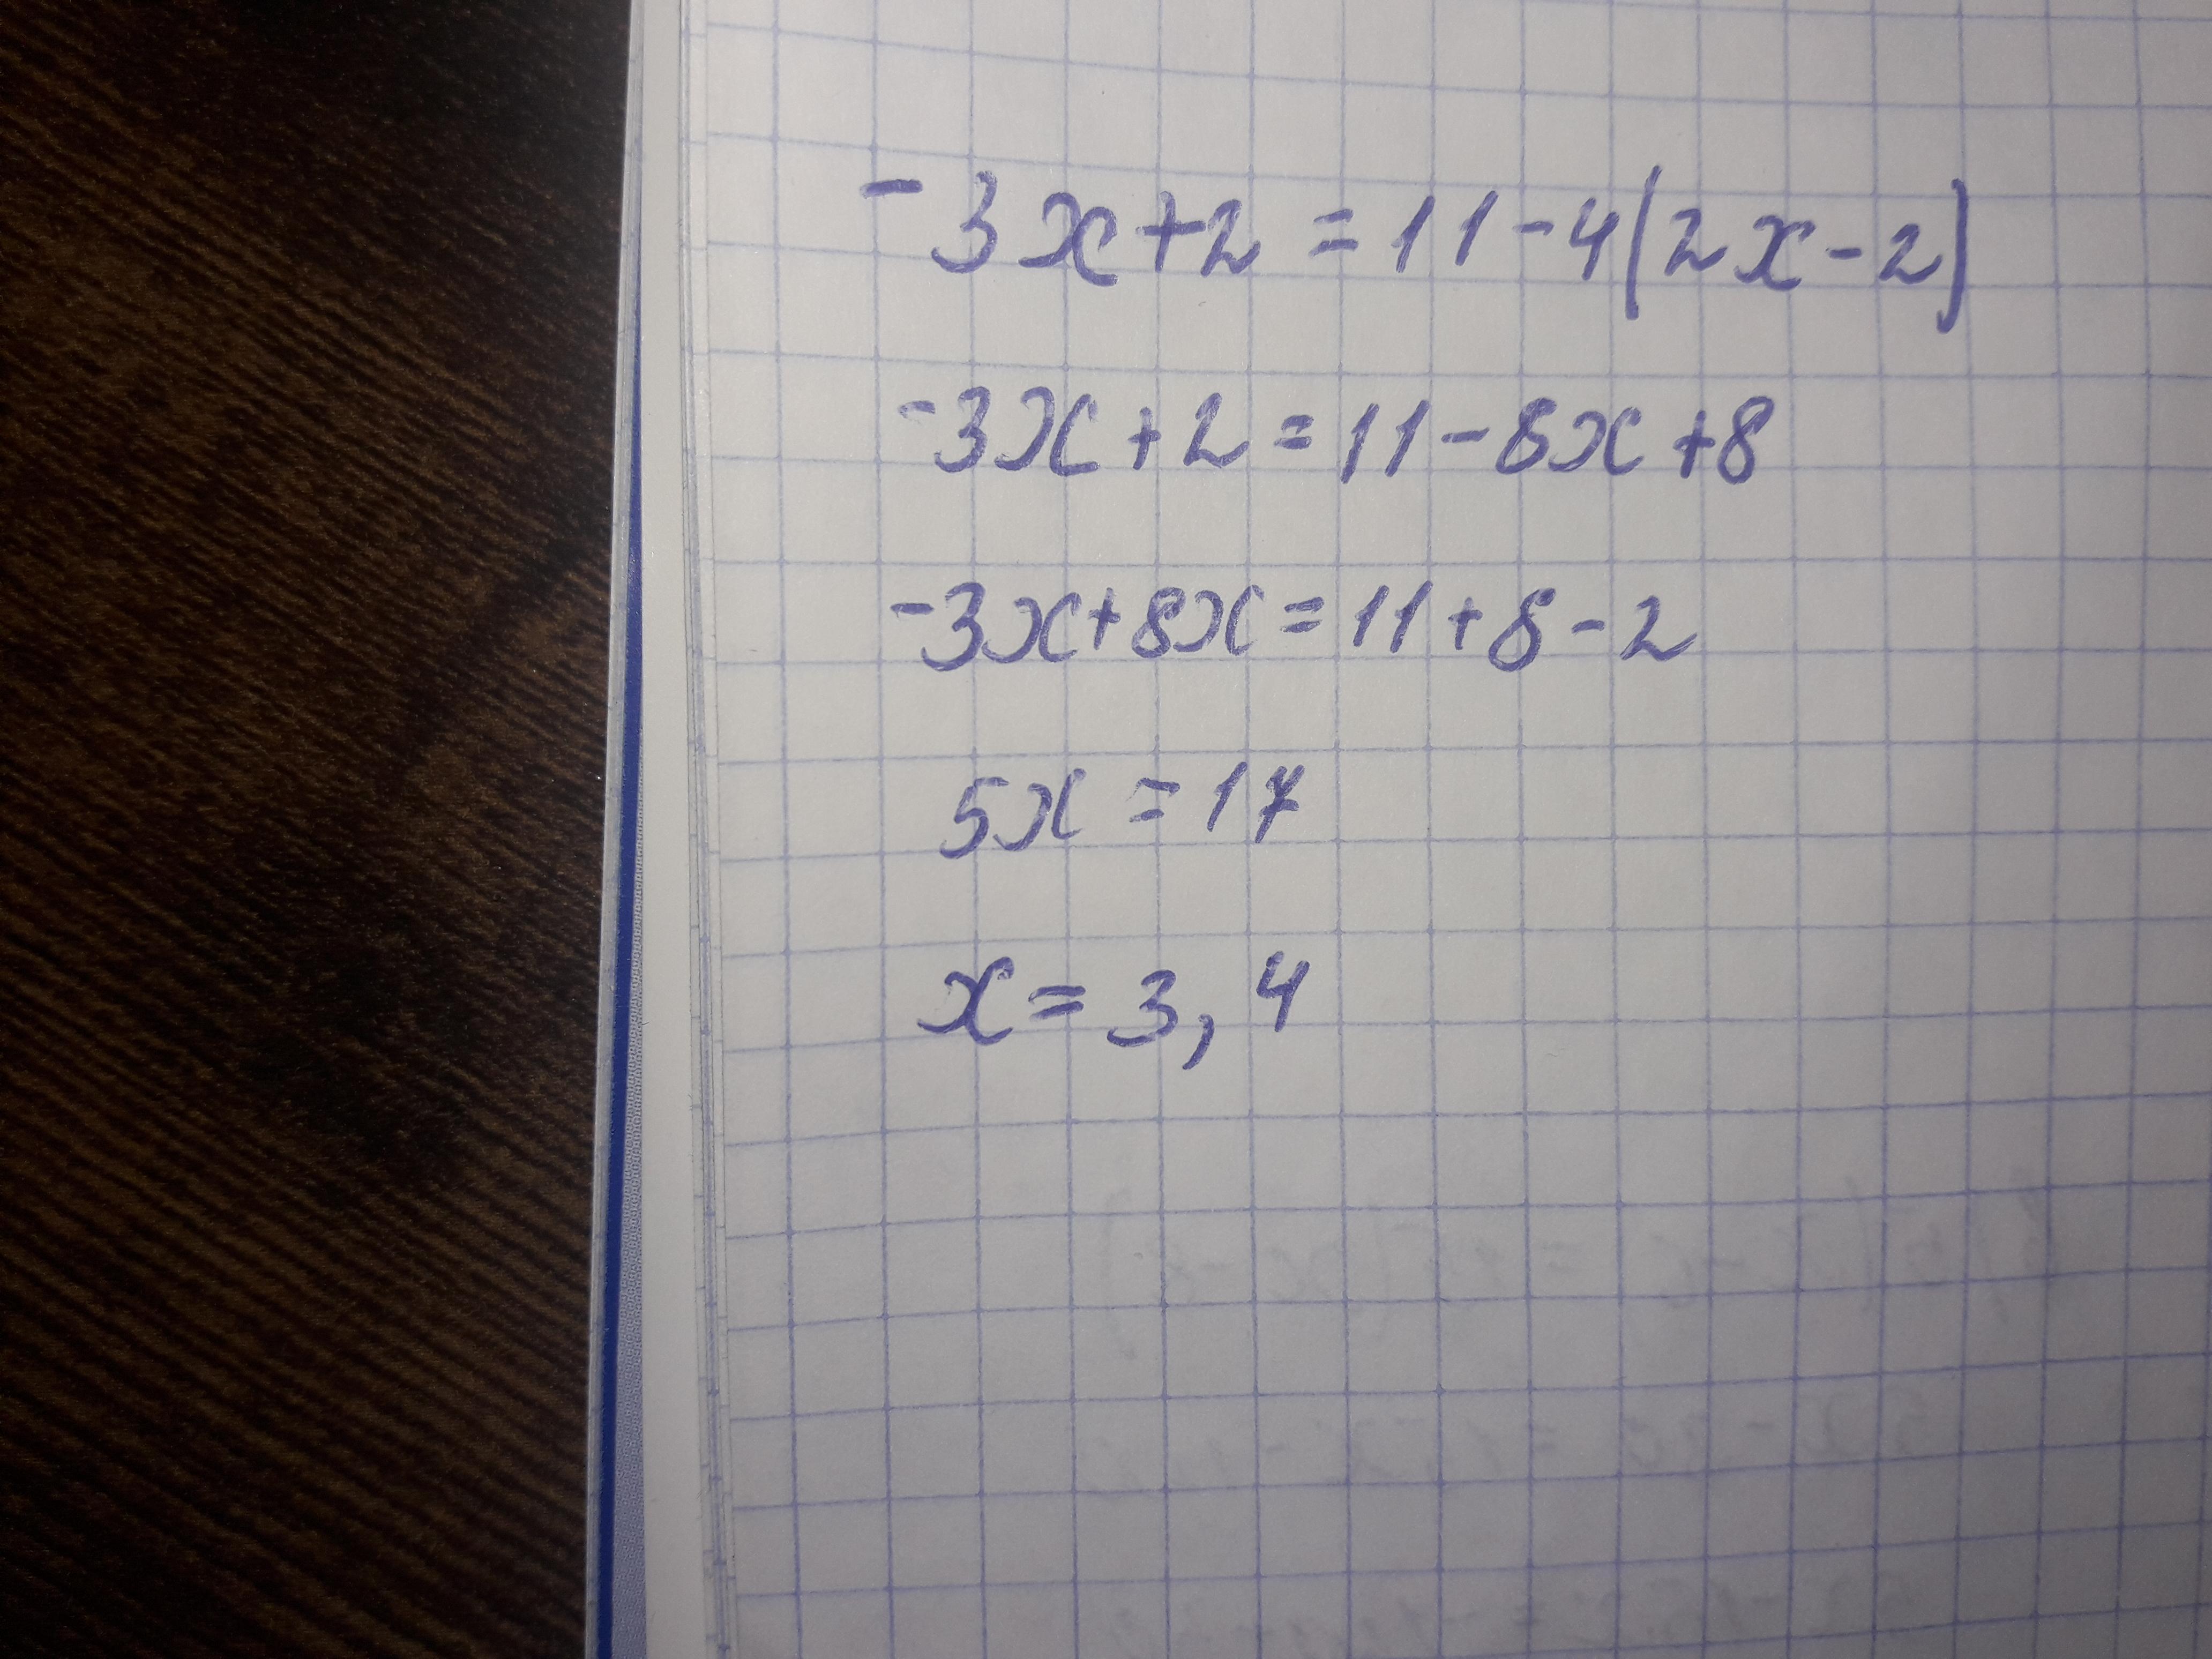 -3x+2=11-4(2x-2)
-3x+2=11-8x+8
-3x+8x=11+8-2
5x=17
x=3,4